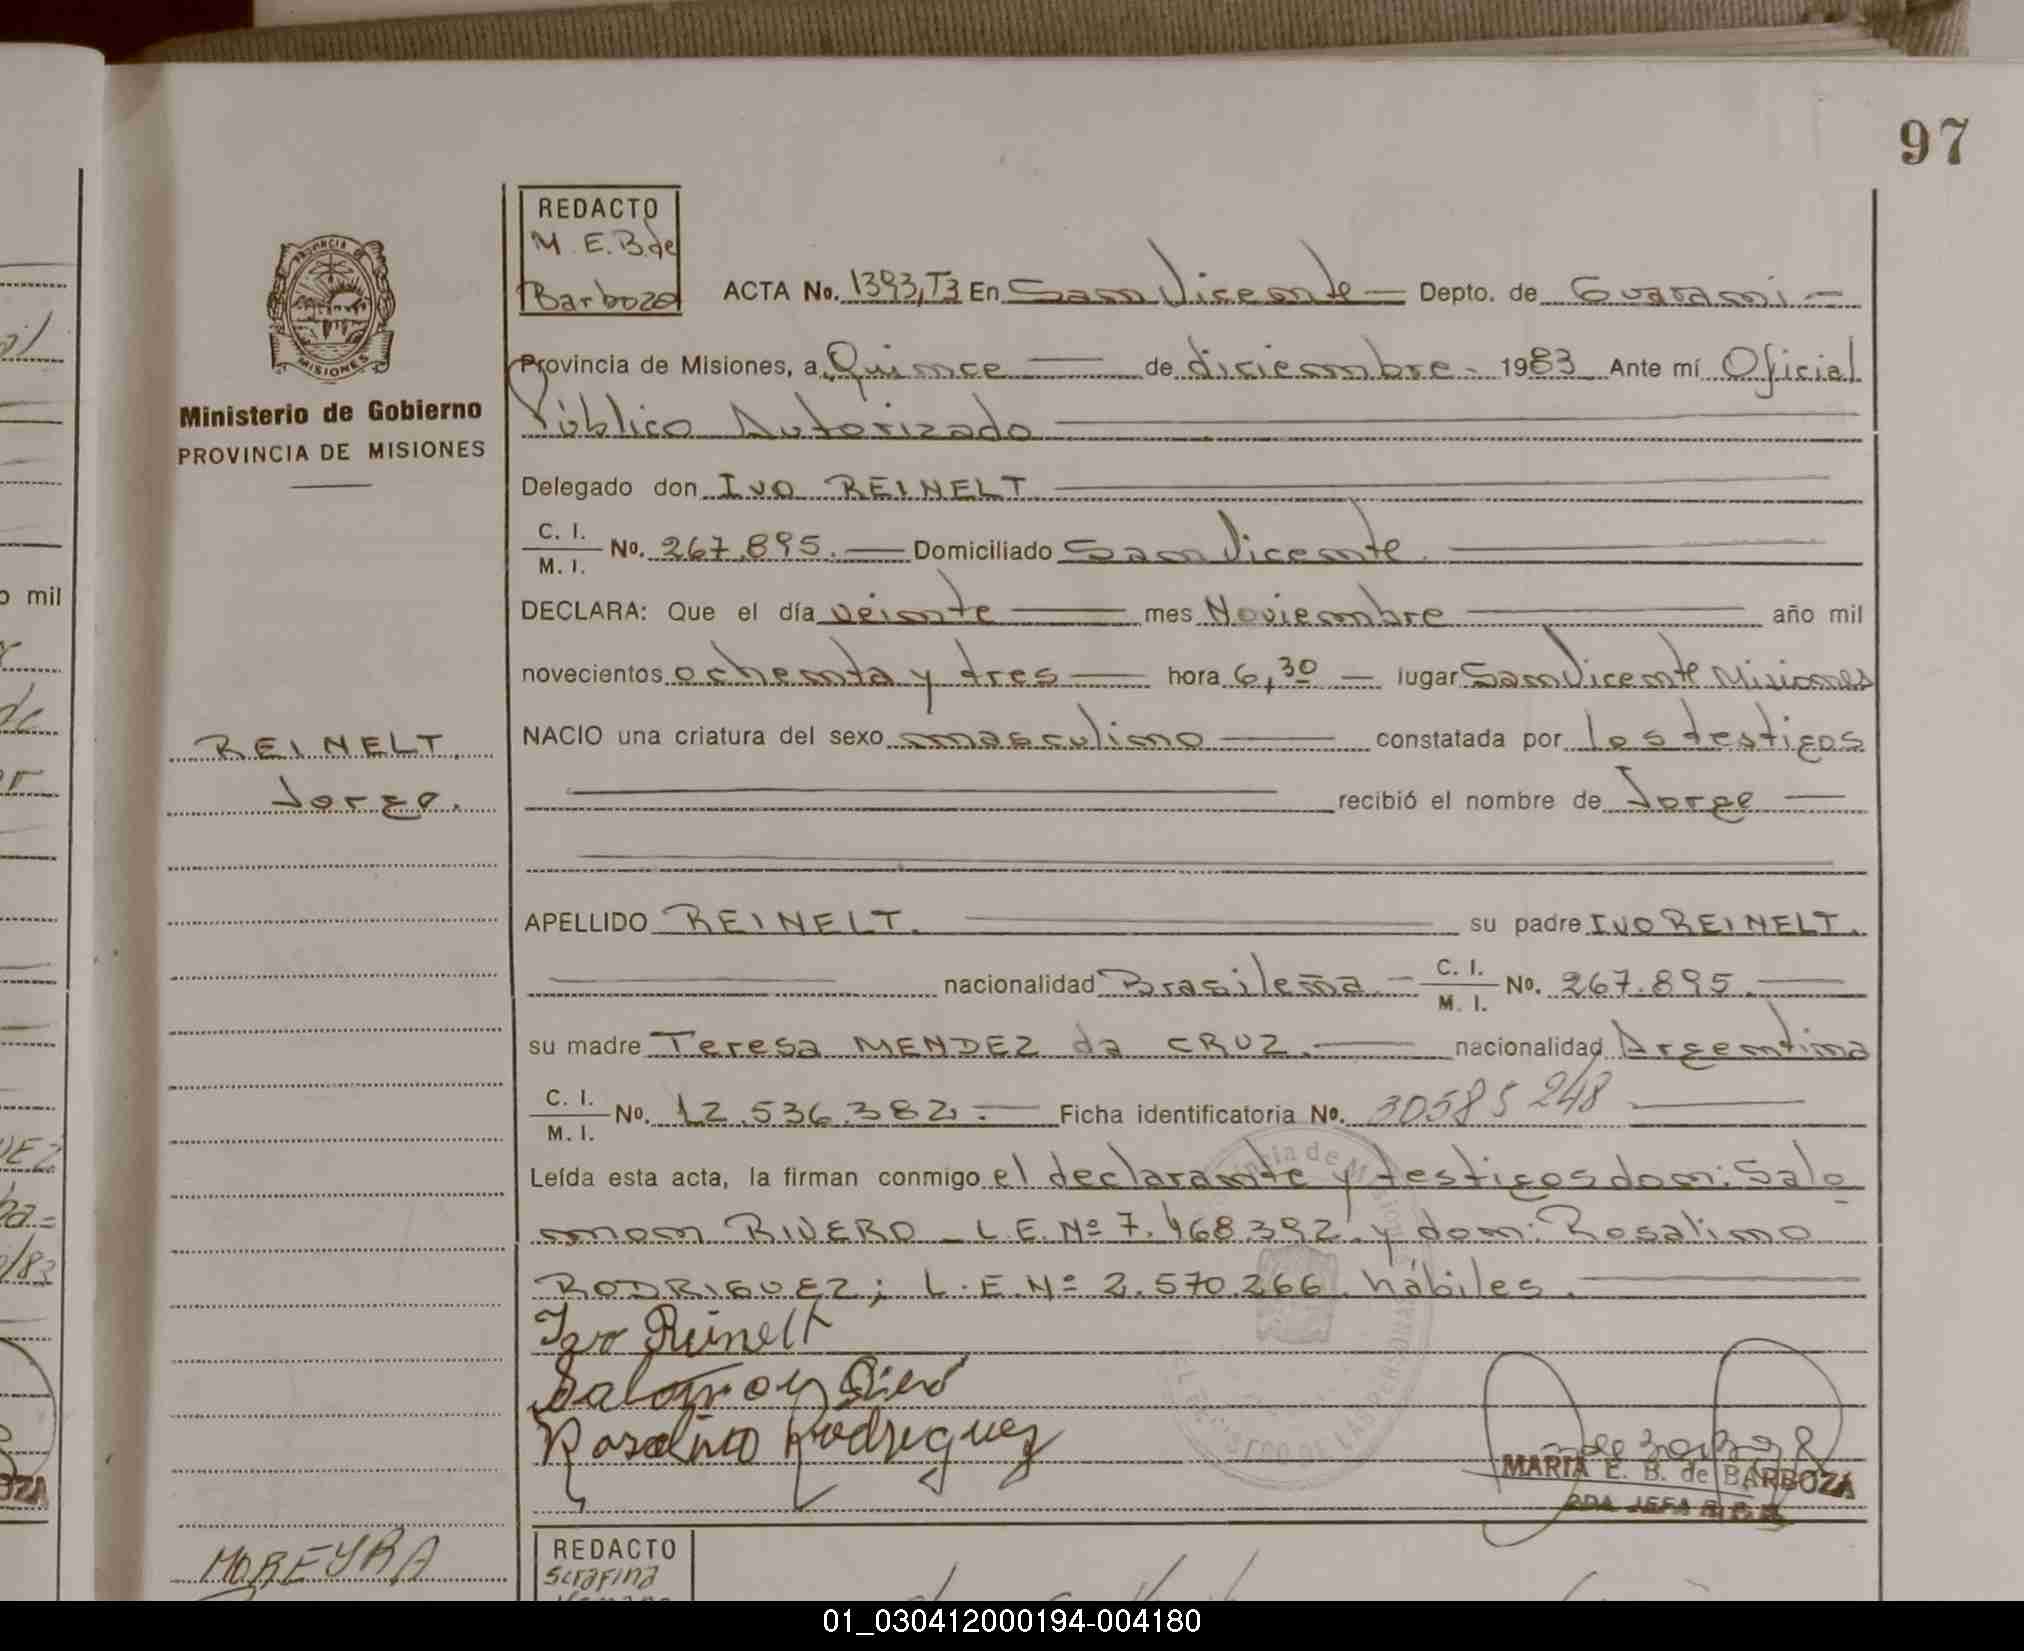 97
REDACTO
M. E. B. de
Barboza
ACTA No. 1393, T3 En San Vicente — Depto. de Guarani —
Provincia de Misiones, a Quince — de diciembre - 1983 Ante mí Oficial
Público Autorizado
Delegado don Ivo REINELT
C. I.
M. I. No. 267.895. — Domiciliado San Vicente.
DECLARA: Que el día veinte — mes Noviembre — año mil
novecientos ochenta y tres — hora 6,30 — lugar San Vicente Misiones
NACIO una criatura del sexo masculino — constatada por los testigos
recibió el nombre de Jorge —
APELLIDO REINELT. su padre IVO REINELT.
nacionalidad Brasileña - C. I.
M. I. No. 267.895.
su madre Teresa MENDEZ da CRUZ. — nacionalidad Argentina
C. I.
M. I. No. 12.536.382. — Ficha identificatoria No. 30585248
Leída esta acta, la firman conmigo el declarante y testigos don: Salo
mon RIVERO - L.E. Nº 7.468.392. y don: Rosalino
RODRIGUEZ; L.E. Nº 2.570.266. hábiles.
Ivo Reinelt
Rosalino Rodriguez
MARIA E. B. de BARBOZA
PROVINCIA
MISIONES
Ministerio de Gobierno
PROVINCIA DE MISIONES
REINELT
Jorge.
MOREYRA
REDACTO
Serafina
o mil
01_030412000194-004180